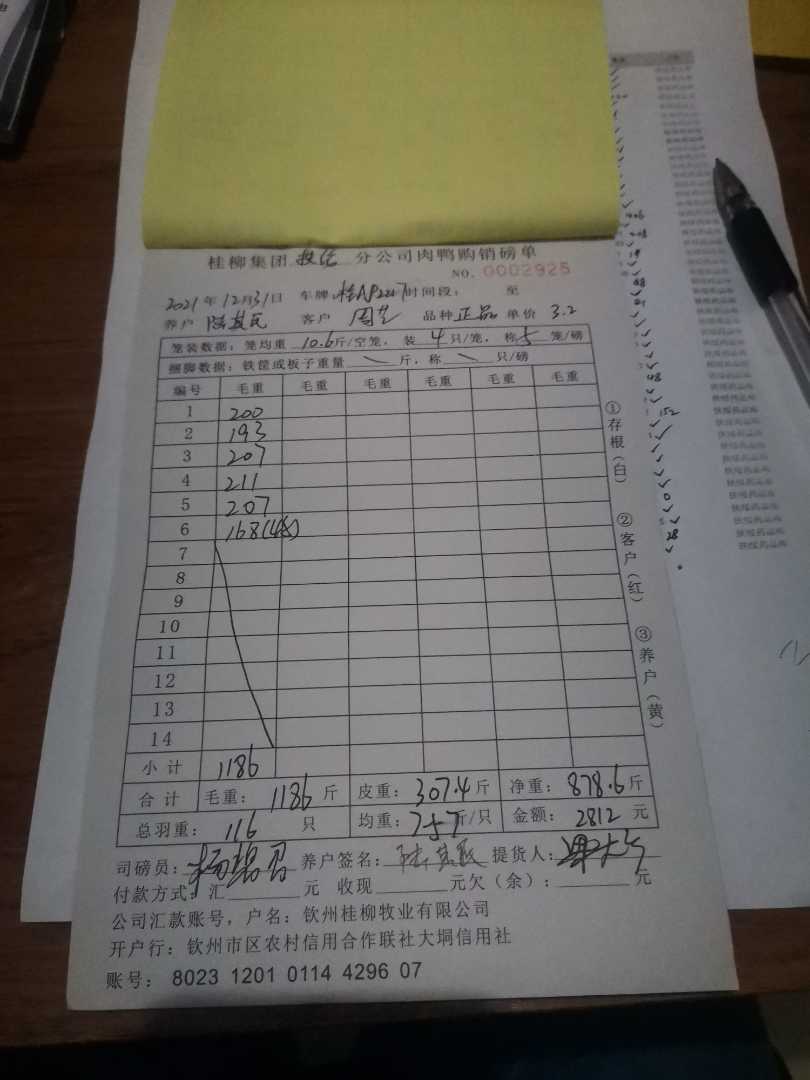 桂柳集团 分公司肉鸭购销磅单
NO. 0002925
2021年12月31日 车牌 时间段： 至
养户 客户 周 品种 正品 单价 3.2
笼装数据：笼均重 10.6斤/空笼，装 4 只/笼，称 5 笼/磅
捆脚数据：铁筐或板子重量 \ 斤，称 \ 只/磅
编号 毛重 毛重 毛重 毛重 毛重 毛重
1 200
2 193
3 207
4 211
5 207
6 168(4笼)
7
8
9
10
11
12
13
14
小计 1186
合计 毛重： 1186 斤 皮重： 307.4 斤 净重： 878.6 斤
总羽重： 116 只 均重： 7.57 斤/只 金额： 2812 元
司磅员： 养户签名： 提货人：
付款方式：汇 元 收现 元欠（余）： 元
公司汇款账号，户名：钦州桂柳牧业有限公司
开户行：钦州市区农村信用合作联社大垌信用社
账号： 8023 1201 0114 4296 07
①存根（白）
②客户（红）
③养户（黄）